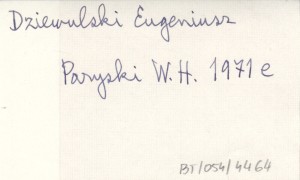 Dziewulski Eugeniusz
Paryski W.H. 1971 e
BT/054/4464